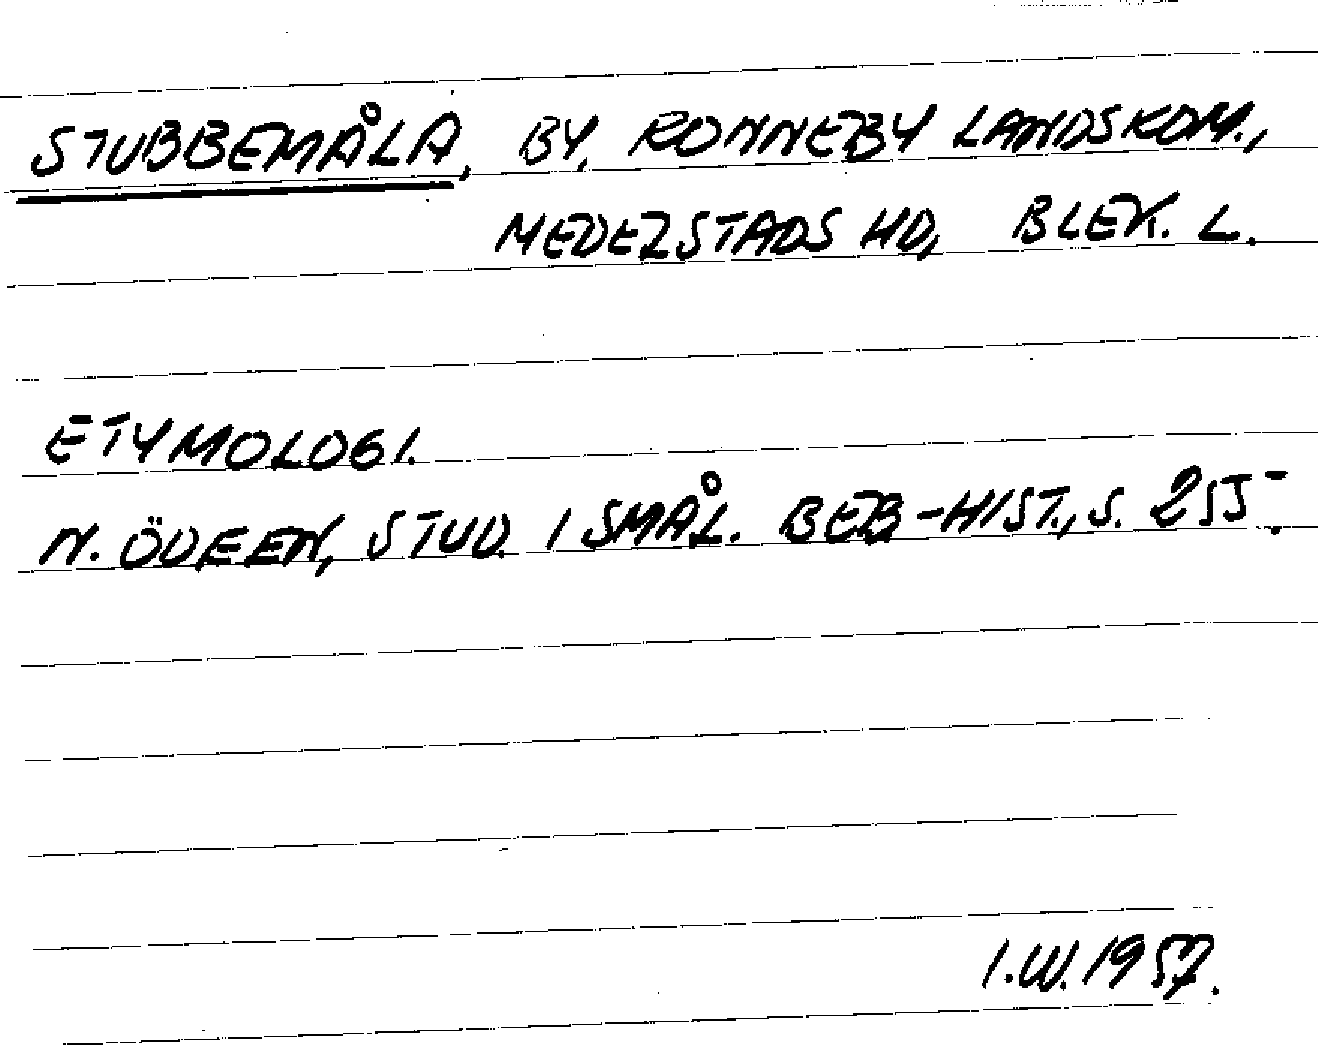 STUBBEMÅLA, BY, RONNEBY LANDSKOM.,
MEDELSTADS HD, BLEK. L.
ETYMOLOGI.
N. ÖDEEN, STUD. I SMÅL. BEB-HIST., S. 255.
I.W. 1957.